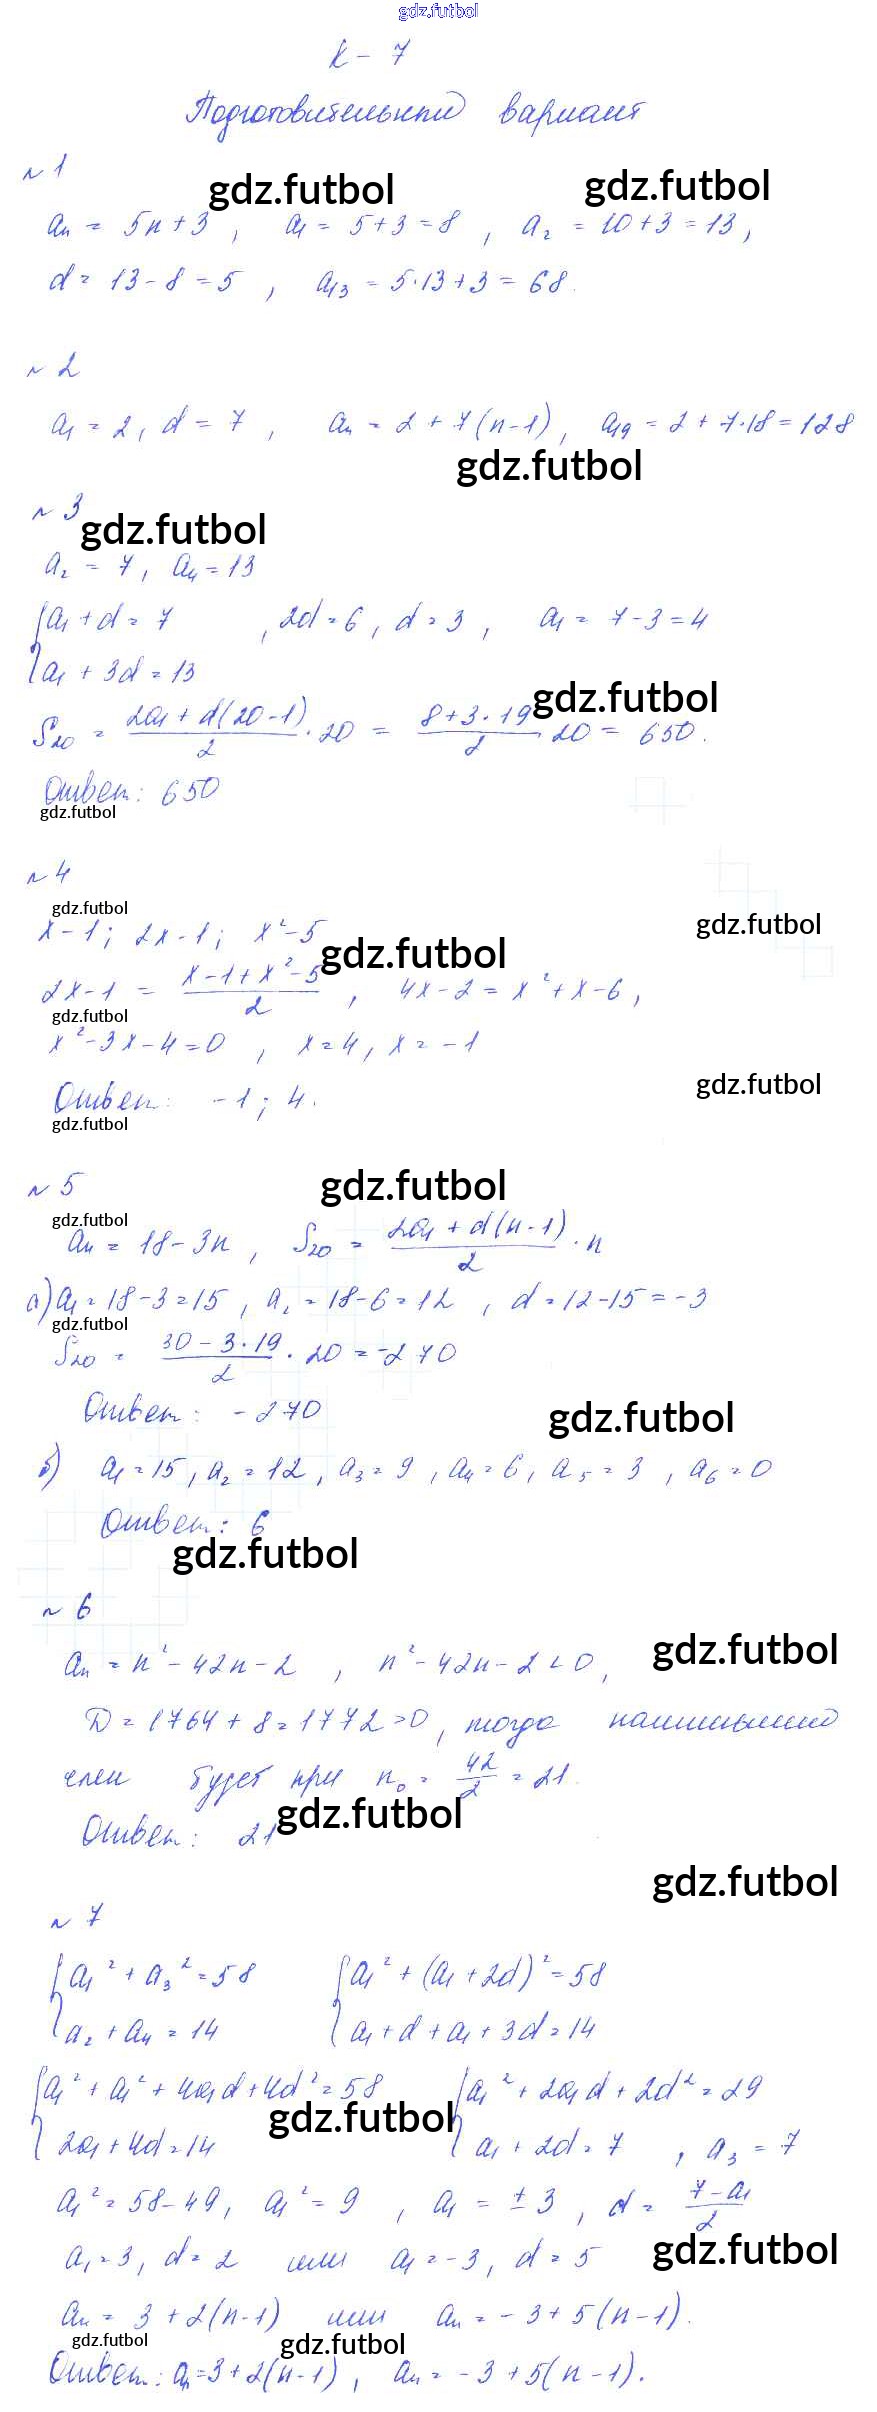 gdz.futbol
К - 7
Подготовительный вариант
№ 1
gdz.futbol gdz.futbol
aₙ = 5n + 3 , a₁ = 5 + 3 = 8 , a₂ = 10 + 3 = 13 ,
d = 13 - 8 = 5 , a₁₃ = 5·13 + 3 = 68.
№ 2
a₁ = 2, d = 7 , aₙ = 2 + 7(n-1), a₁₉ = 2 + 7·18 = 128
gdz.futbol
№ 3
gdz.futbol
a₂ = 7, a₄ = 13
{ a₁ + d = 7 , 2d = 6, d = 3 , a₁ = 7 - 3 = 4
a₁ + 3d = 13
gdz.futbol
S₂₀ = (2a₁ + d(20-1))/2 · 20 = (8 + 3·19)/2 · 20 = 650.
Ответ: 650
gdz.futbol
№ 4
gdz.futbol gdz.futbol
x - 1; 2x - 1; x² - 5
gdz.futbol
2x - 1 = (x - 1 + x² - 5)/2 , 4x - 2 = x² + x - 6 ,
gdz.futbol
x² - 3x - 4 = 0 , x = 4, x = -1
gdz.futbol
Ответ: -1; 4.
gdz.futbol
№ 5
gdz.futbol
gdz.futbol
aₙ = 18 - 3n , S₂₀ = (2a₁ + d(n-1))/2 · n
а) a₁ = 18 - 3 = 15 , a₂ = 18 - 6 = 12 , d = 12 - 15 = -3
gdz.futbol
S₂₀ = (30 - 3·19)/2 · 20 = -270
Ответ: -270
gdz.futbol
б) a₁ = 15, a₂ = 12, a₃ = 9, a₄ = 6, a₅ = 3 , a₆ = 0
Ответ: 6
gdz.futbol
№ 6
gdz.futbol
aₙ = n² - 42n - 2 , n² - 42n - 2 < 0,
D = 1764 + 8 = 1772 > 0, тогда наименьший
член будет при n₀ = 42/2 = 21.
gdz.futbol
Ответ: 21
gdz.futbol
№ 7
{ a₁² + a₃² = 58 { a₁² + (a₁ + 2d)² = 58
a₂ + a₄ = 14 a₁ + d + a₁ + 3d = 14
{ a₁² + a₁² + 4a₁d + 4d² = 58 { a₁² + 2a₁d + 2d² = 29
gdz.futbol
2a₁ + 4d = 14 a₁ + 2d = 7 , a₃ = 7
a₁² = 58 - 49, a₁² = 9 , a₁ = ± 3 , d = (7 - a₁)/2
gdz.futbol
a₁ = 3, d = 2 или a₁ = -3, d = 5
aₙ = 3 + 2(n-1) или aₙ = -3 + 5(n-1).
gdz.futbol gdz.futbol
Ответ: aₙ = 3 + 2(n-1), aₙ = -3 + 5(n-1).